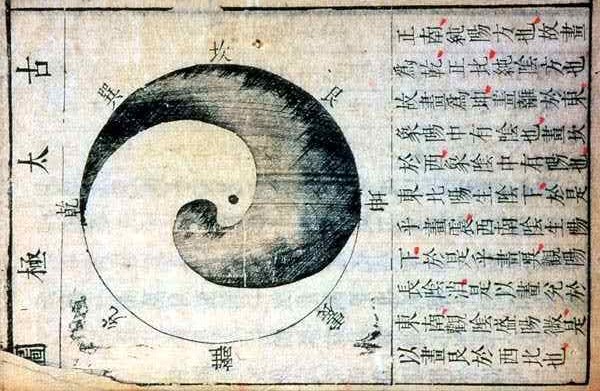 古太極圖
乾
兌
離
震
巽
坎
艮
坤
正南純陽方也故畫
為乾正北純陰方也
故畫為坤畫離於東
象陽中有陰也畫坎
於西象陰中有陽也
東北陽生陰下於是
乎畫震西南陰生陽
下於是乎畫巽觀陽
長陰消是以畫兌於
東南觀陰盛陽微是
以畫艮於西北也